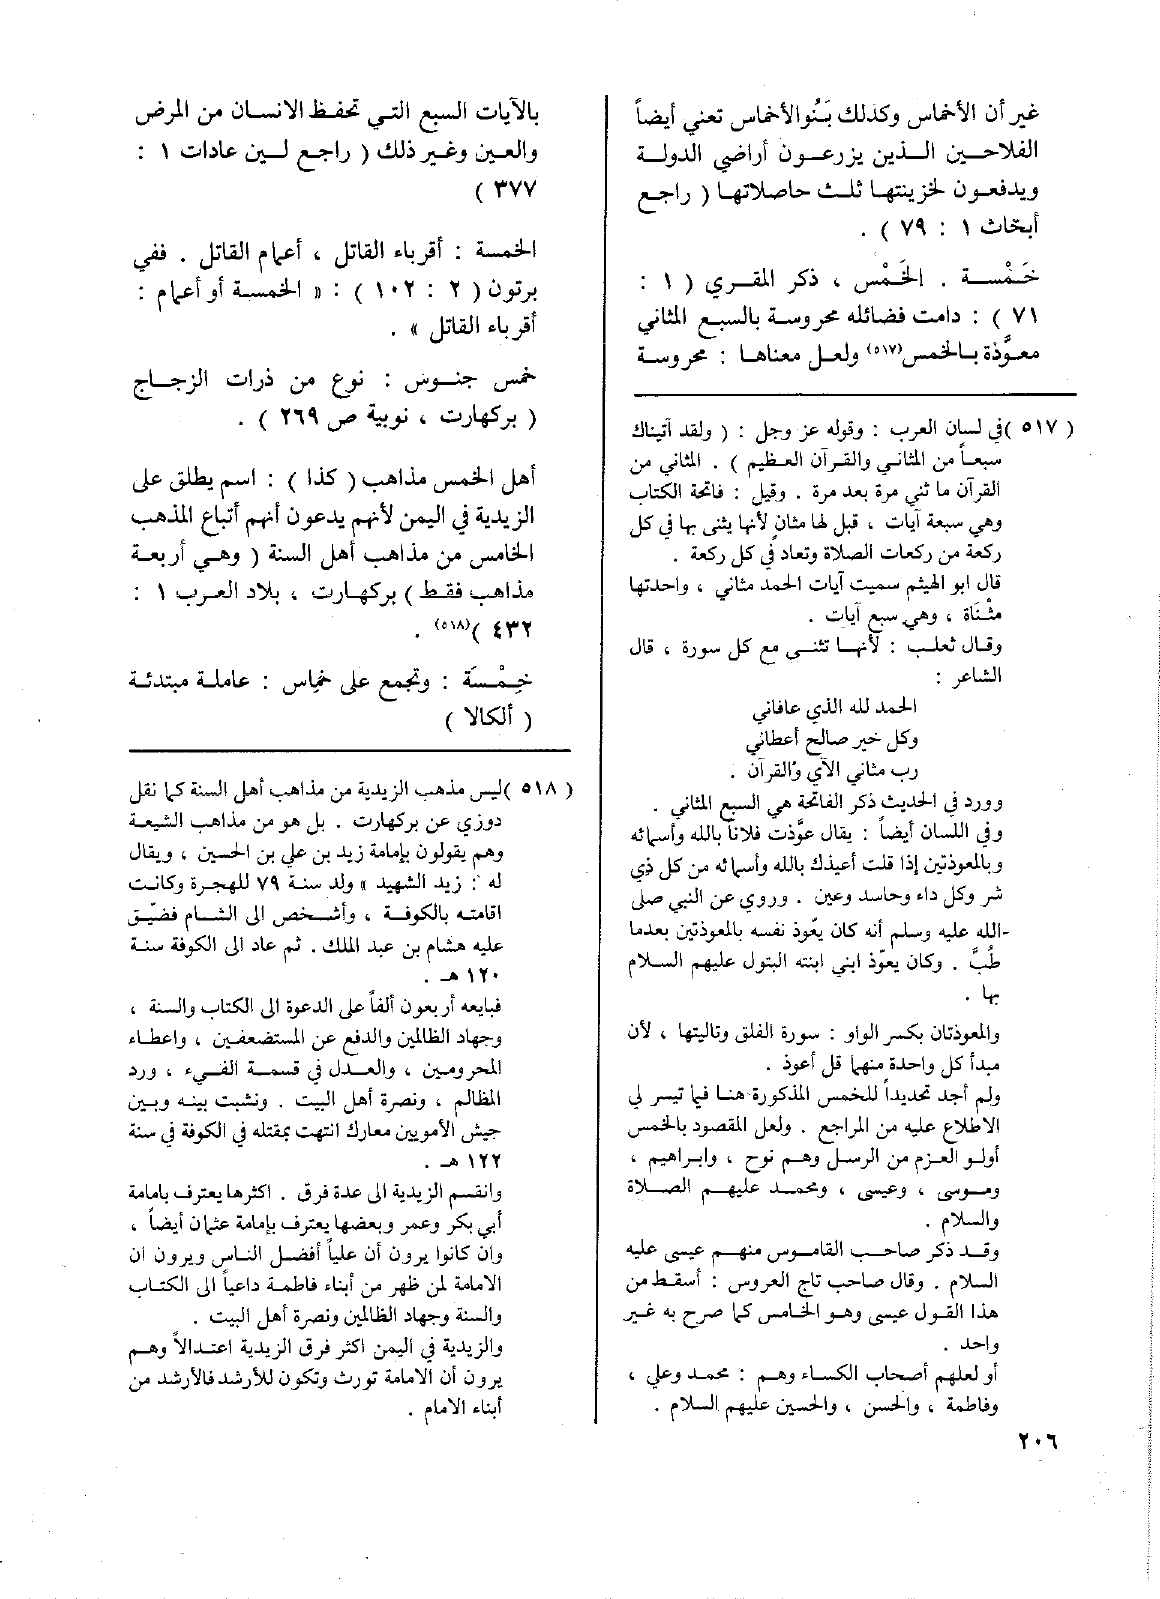 غير أن الأخماس وكذلك بَنُو الأخماس تعني أيضاً
الفلاحين الذين يزرعون أراضي الدولة
ويدفعون لخزينتها ثلث حاصلاتها ( راجع
أبحاث ١ : ٧٩ ) .
خَمْسة . الخَمْس ، ذكر المقري ( ١ :
٧١ ) : دامت فضائله محروسة بالسبع المثاني
معوَّذة بالخمس(٥١٧) ولعل معناها : محروسة
( ٥١٧ )في لسان العرب : وقوله عز وجل : ( ولقد آتيناك
سبعاً من المثاني والقرآن العظيم ) . المثاني من
القرآن ما ثني مرة بعد مرة . وقيل : فاتحة الكتاب
وهي سبعة آيات ، قبل لها مثانٍ لأنها يثنى بها في كل
ركعة من ركعات الصلاة وتعاد في كل ركعة .
قال ابو الهيثم سميت آيات الحمد مثاني ، واحدتها
مثْناة ، وهي سبع آيات .
وقال ثعلب : لأنها تثنى مع كل سورة ، قال
الشاعر :
الحمد لله الذي عافاني
وكل خير صالح أعطاني
رب مثاني الآي والقرآن .
وورد في الحديث ذكر الفاتحة هي السبع المثاني .
وفي اللسان أيضاً : يقال عوّذت فلاناً بالله وأسمائه
وبالمعوذتين إذا قلت أعيذك بالله وأسمائه من كل ذي
شر وكل داء وحاسد وعين . وروي عن النبي صلى
الله عليه وسلم أنه كان يعّوذ نفسه بالمعوذتين بعدما
طُبَّ . وكان يعوّذ ابني ابنته البتول عليهم السلام
بها .
والمعوذتان بكسر الواو : سورة الفلق وتاليتها ، لأن
مبدأ كل واحدة منهما قل أعوذ .
ولم أجد تحديداً للخمس المذكورة هنا فيما تيسر لي
الاطلاع عليه من المراجع . ولعل المقصود بالخمس
أولو العزم من الرسل وهم نوح ، وابراهيم ،
وموسى ، وعيسى ، ومحمد عليهم الصلاة
والسلام .
وقد ذكر صاحب القاموس منهم عيسى عليه
السلام . وقال صاحب تاج العروس : أسقط من
هذا القول عيسى وهو الخامس كما صرح به غير
واحد .
أو لعلهم أصحاب الكساء وهم : محمد وعلي ،
وفاطمة ، والحسن ، والحسين عليهم السلام .
بالآيات السبع التي تحفظ الانسان من المرض
والعين وغير ذلك ( راجع لين عادات ١ :
٣٧٧ )
الخمسة : أقرباء القاتل ، أعمام القاتل . ففي
برتون ( ٢ : ١٠٢ ) : « الخمسة أو أعمام :
أقرباء القاتل » .
خمس جنوس : نوع من ذرات الزجاج
( بركهارت ، نوبية ص ٢٦٩ ) .
أهل الخمس مذاهب ( كذا ) : اسم يطلق على
الزيدية في اليمن لأنهم يدعون أنهم أتباع المذهب
الخامس من مذاهب أهل السنة ( وهي أربعة
مذاهب فقط ) بركهارت ، بلاد العرب ١ :
٤٣٢ )(٥١٨) .
خِمْسَة : وتجمع على خماس : عاملة مبتدئة
( ألكالا )
( ٥١٨ )ليس مذهب الزيدية من مذاهب أهل السنة كما نقل
دوزي عن بركهارت . بل هو من مذاهب الشيعة
وهم يقولون بإمامة زيد بن علي بن الحسين ، ويقال
له : زيد الشهيد » ولد سنة ٧٩ للهجرة وكانت
اقامته بالكوفة ، وأشخص الى الشام فضيّق
عليه هشام بن عبد الملك . ثم عاد الى الكوفة سنة
١٢٠ هـ .
فبايعه أربعون ألفاً على الدعوة الى الكتاب والسنة ،
وجهاد الظالمين والدفع عن المستضعفين ، واعطاء
المحرومين ، والعدل في قسمة الفيء ، ورد
المظالم ، ونصرة أهل البيت . ونشبت بينه وبين
جيش الأمويين معارك انتهت بمقتله في الكوفة في سنة
١٢٢ هـ .
وانقسم الزيدية الى عدة فرق . اكثرها يعترف بامامة
أبي بكر وعمر وبعضها يعترف بإمامة عثمان أيضاً ،
وان كانوا يرون أن علياً أفضل الناس ويرون ان
الامامة لمن ظهر من أبناء فاطمة داعياً الى الكتاب
والسنة وجهاد الظالمين ونصرة أهل البيت .
والزيدية في اليمن اكثر فرق الزيدية اعتدالاً وهم
يرون أن الامامة تورث وتكون للأرشد فالأرشد من
أبناء الامام .
٢٠٦